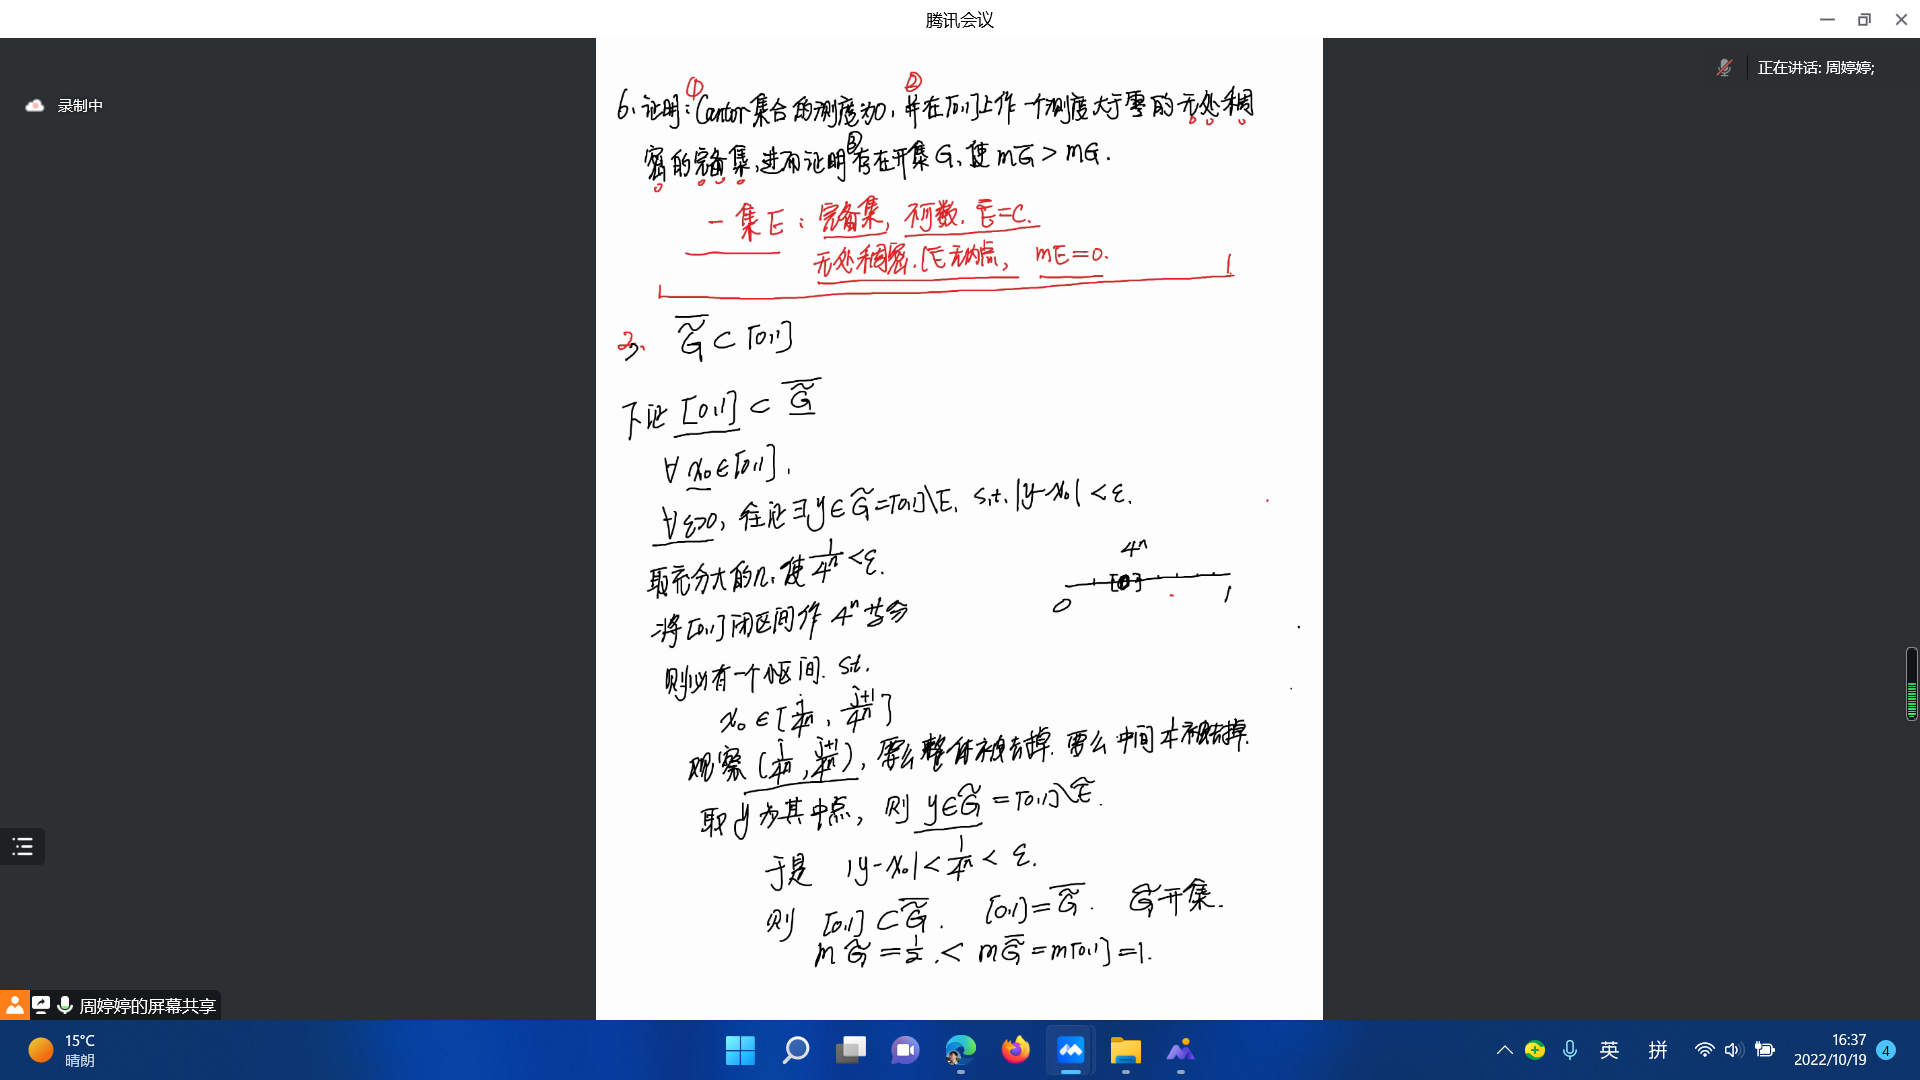 腾讯会议
正在讲话: 周婷婷;
录制中
① ②
6. 证明: Cantor集合的测度为0, 并在[0,1]上作一个测度大于零的无处稠
密的完备集, 进而证明③存在开集G, 使 mG̅ > mG.
一集E: 完备集, 不可数. E̿=C.
无处稠密. [E无内点, mE=0.
2. G̃̅ ⊂ [0,1]
下证 [0,1] ⊂ G̃̅
∀ x₀∈[0,1],
∀ε>0, 往证∃y∈G̃=[0,1]\E, s.t. |y-x₀| < ε.
取充分大的n, 使 1/4ⁿ < ε.
4ⁿ
0 1
将[0,1]闭区间作 4ⁿ 等分
则必有一个小区间. s.t.
x₀ ∈ [j/4ⁿ, (j+1)/4ⁿ]
观察 (j/4ⁿ, (j+1)/4ⁿ), 要么整体被去掉. 要么中间 被去掉.
取 y 为其中点, 则 y∈G̃ = [0,1]\Ẽ.
于是 |y-x₀| < 1/4ⁿ < ε.
则 [0,1] ⊂ G̃̅. [0,1] = G̃̅. G̃开集.
mG̃ = 1/2 < mG̃̅ = m[0,1] = 1.
周婷婷的屏幕共享
15°C
晴朗
英 拼
16:37
2022/10/19
4